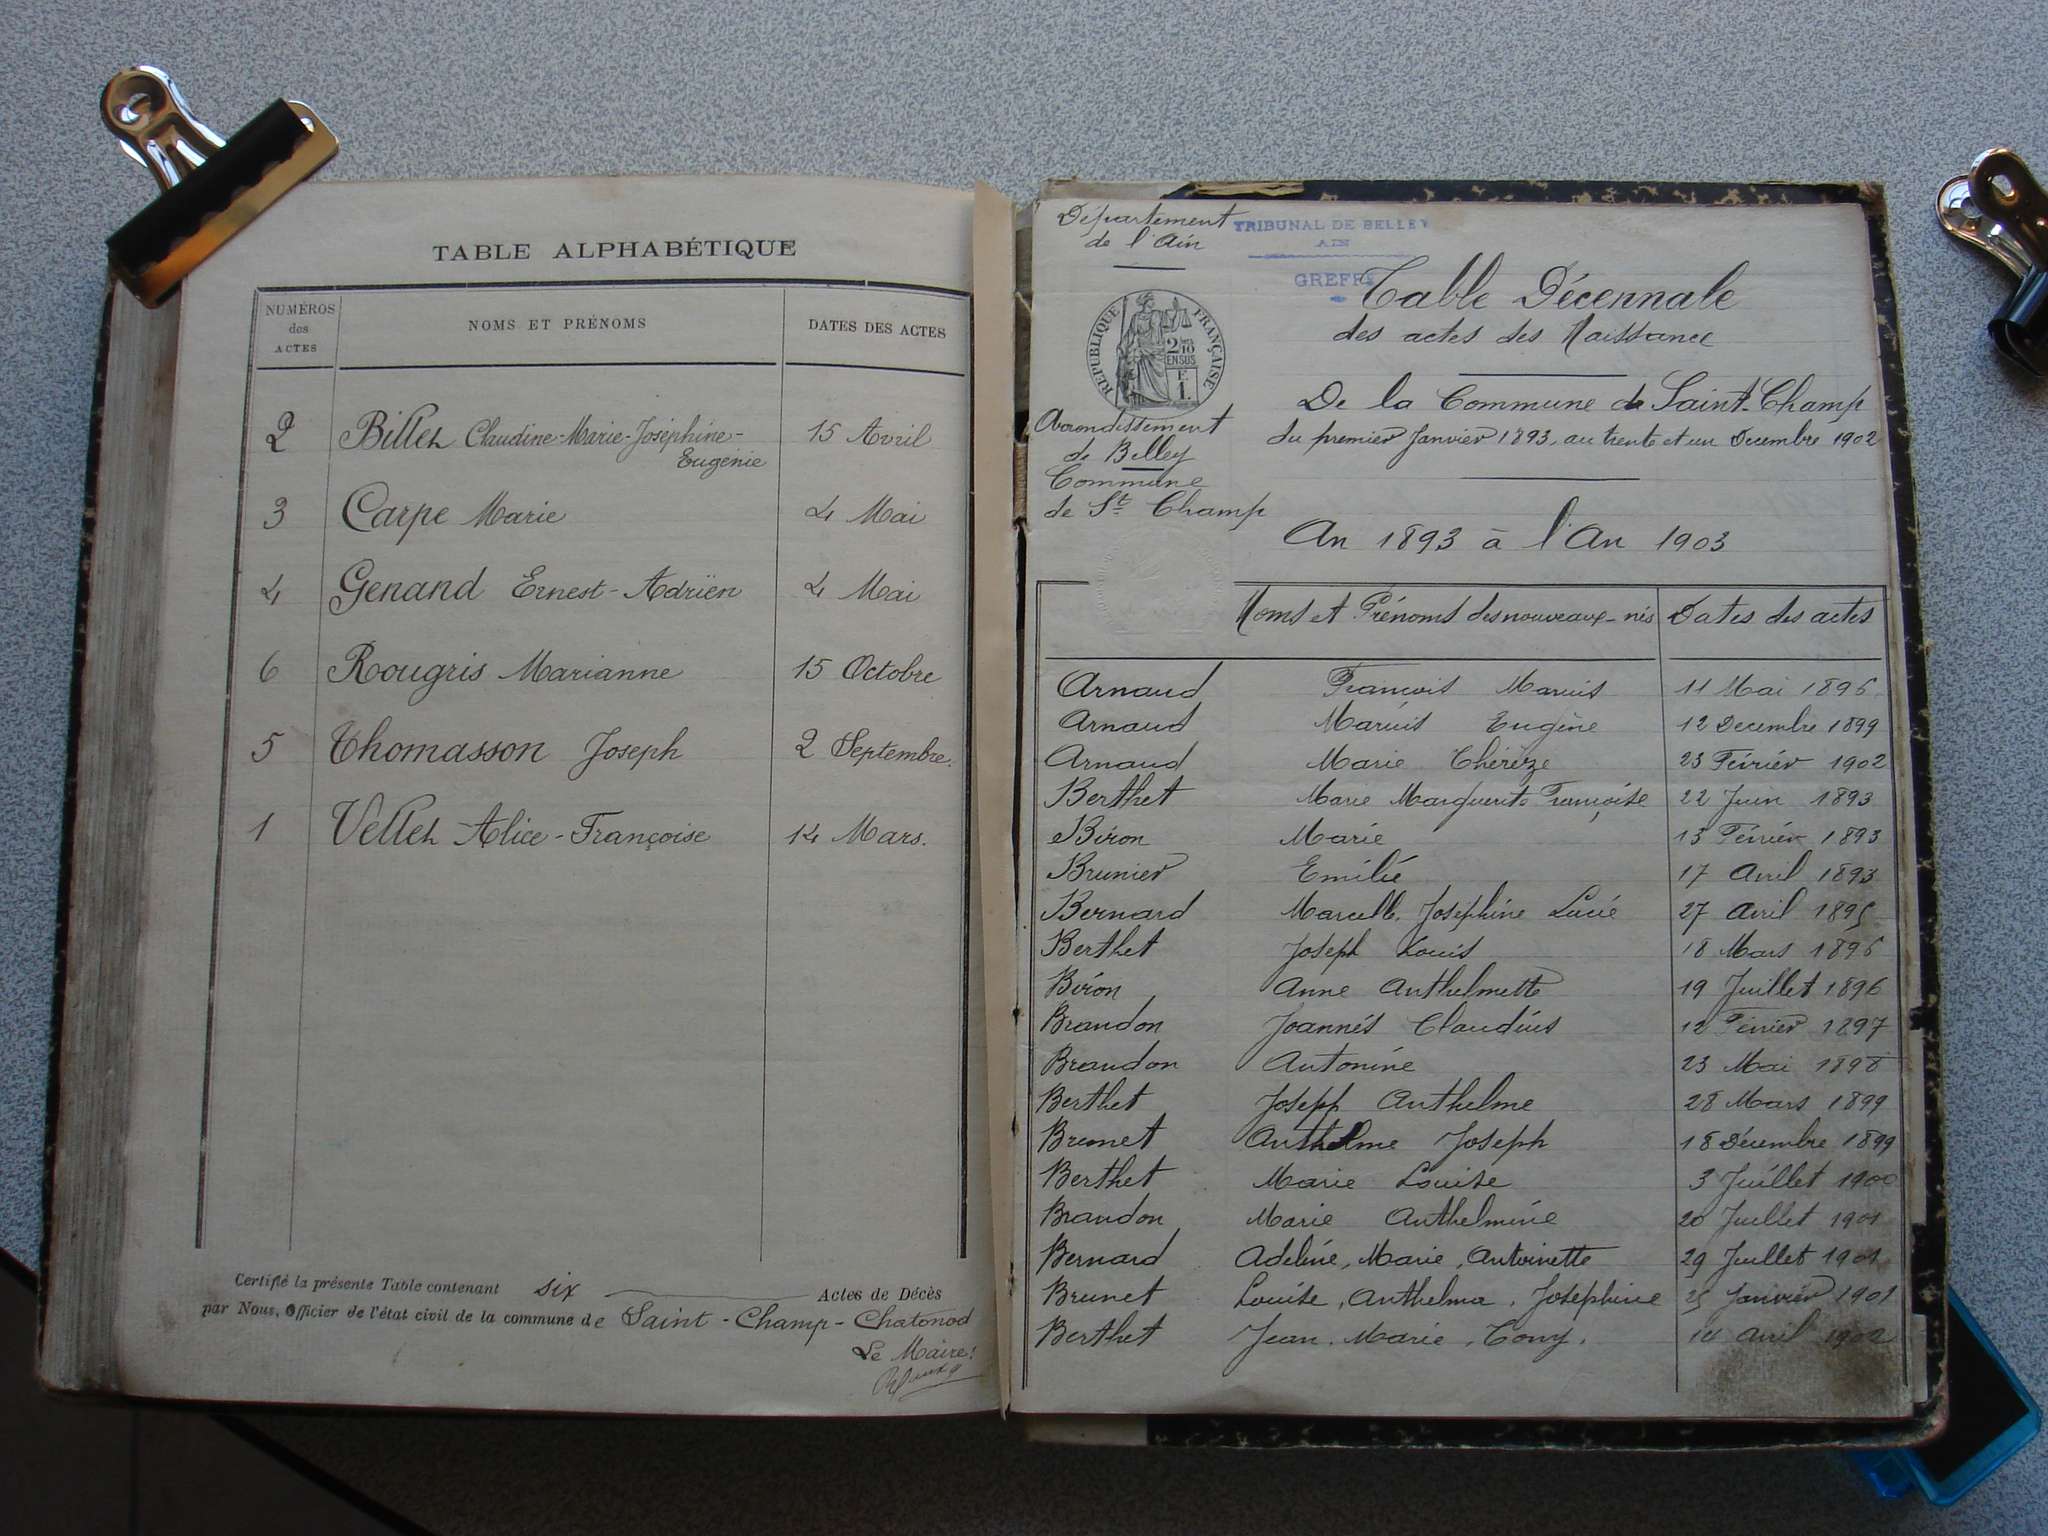 TABLE ALPHABÉTIQUE
NUMÉROS des ACTES
NOMS ET PRÉNOMS
DATES DES ACTES
2 Billet Claudine-Marie-Joséphine- 15 Avril
Eugénie
3 Carpe Marie 4 Mai
4 Genand Ernest-Adrïen 4 Mai
6 Rougris Marianne 15 Octobre
5 Thomasson Joseph 2 Septembre.
1 Vellet Alice-Françoise 14 Mars.
Certifié la présente Table contenant six Actes de Décès
par Nous, Officier de l'état civil de la commune de Saint-Champ-Chatonod
Le Maire:
Département
de l'Ain
TRIBUNAL DE BELLEY
AIN
GREFFE
RÉPUBLIQUE FRANÇAISE
2/10 EN SUS
F 1.
Arrondissement
de Belley
Commune
de St Champ
Table Décennale
des actes des Naissance
De la Commune de Saint-Champ
du premier Janvier 1893, au trente et un Decembre 1902
An 1893 à l'An 1903
Noms et Prénoms des nouveaux-nés Dates des actes
Arnaud François Marius 11 Mai 1896
Arnaud Marius Eugène 12 Decembre 1899
Arnaud Marie Thérèze 23 Février 1902
Berthet Marie Marguerite Françoise 22 Juin 1893
Biron Marie 13 Février 1893
Brunier Emilie 17 Avril 1893
Bernard Marcelle, Joséphine Lucie 27 Avril 1895
Berthet Joseph Louis 18 Mars 1896
Biron Anne Anthelmette 19 Juillet 1896
Brandon Joannés Claudius 12 Février 1897
Brandon Antonine 23 Mai 1898
Berthet Joseph Anthelme 28 Mars 1899
Brunet Anthelme Joseph 18 Décembre 1899
Berthet Marie Louise 3 Juillet 1900
Brandon Marie Anthelmine 20 Juillet 1901
Bernard Adeline, Marie, Antoinette 29 Juillet 1901
Brunet Louise, Anthelma, Josephine 25 Janvier 1901
Berthet Jean, Marie, Tony. Avril 1902